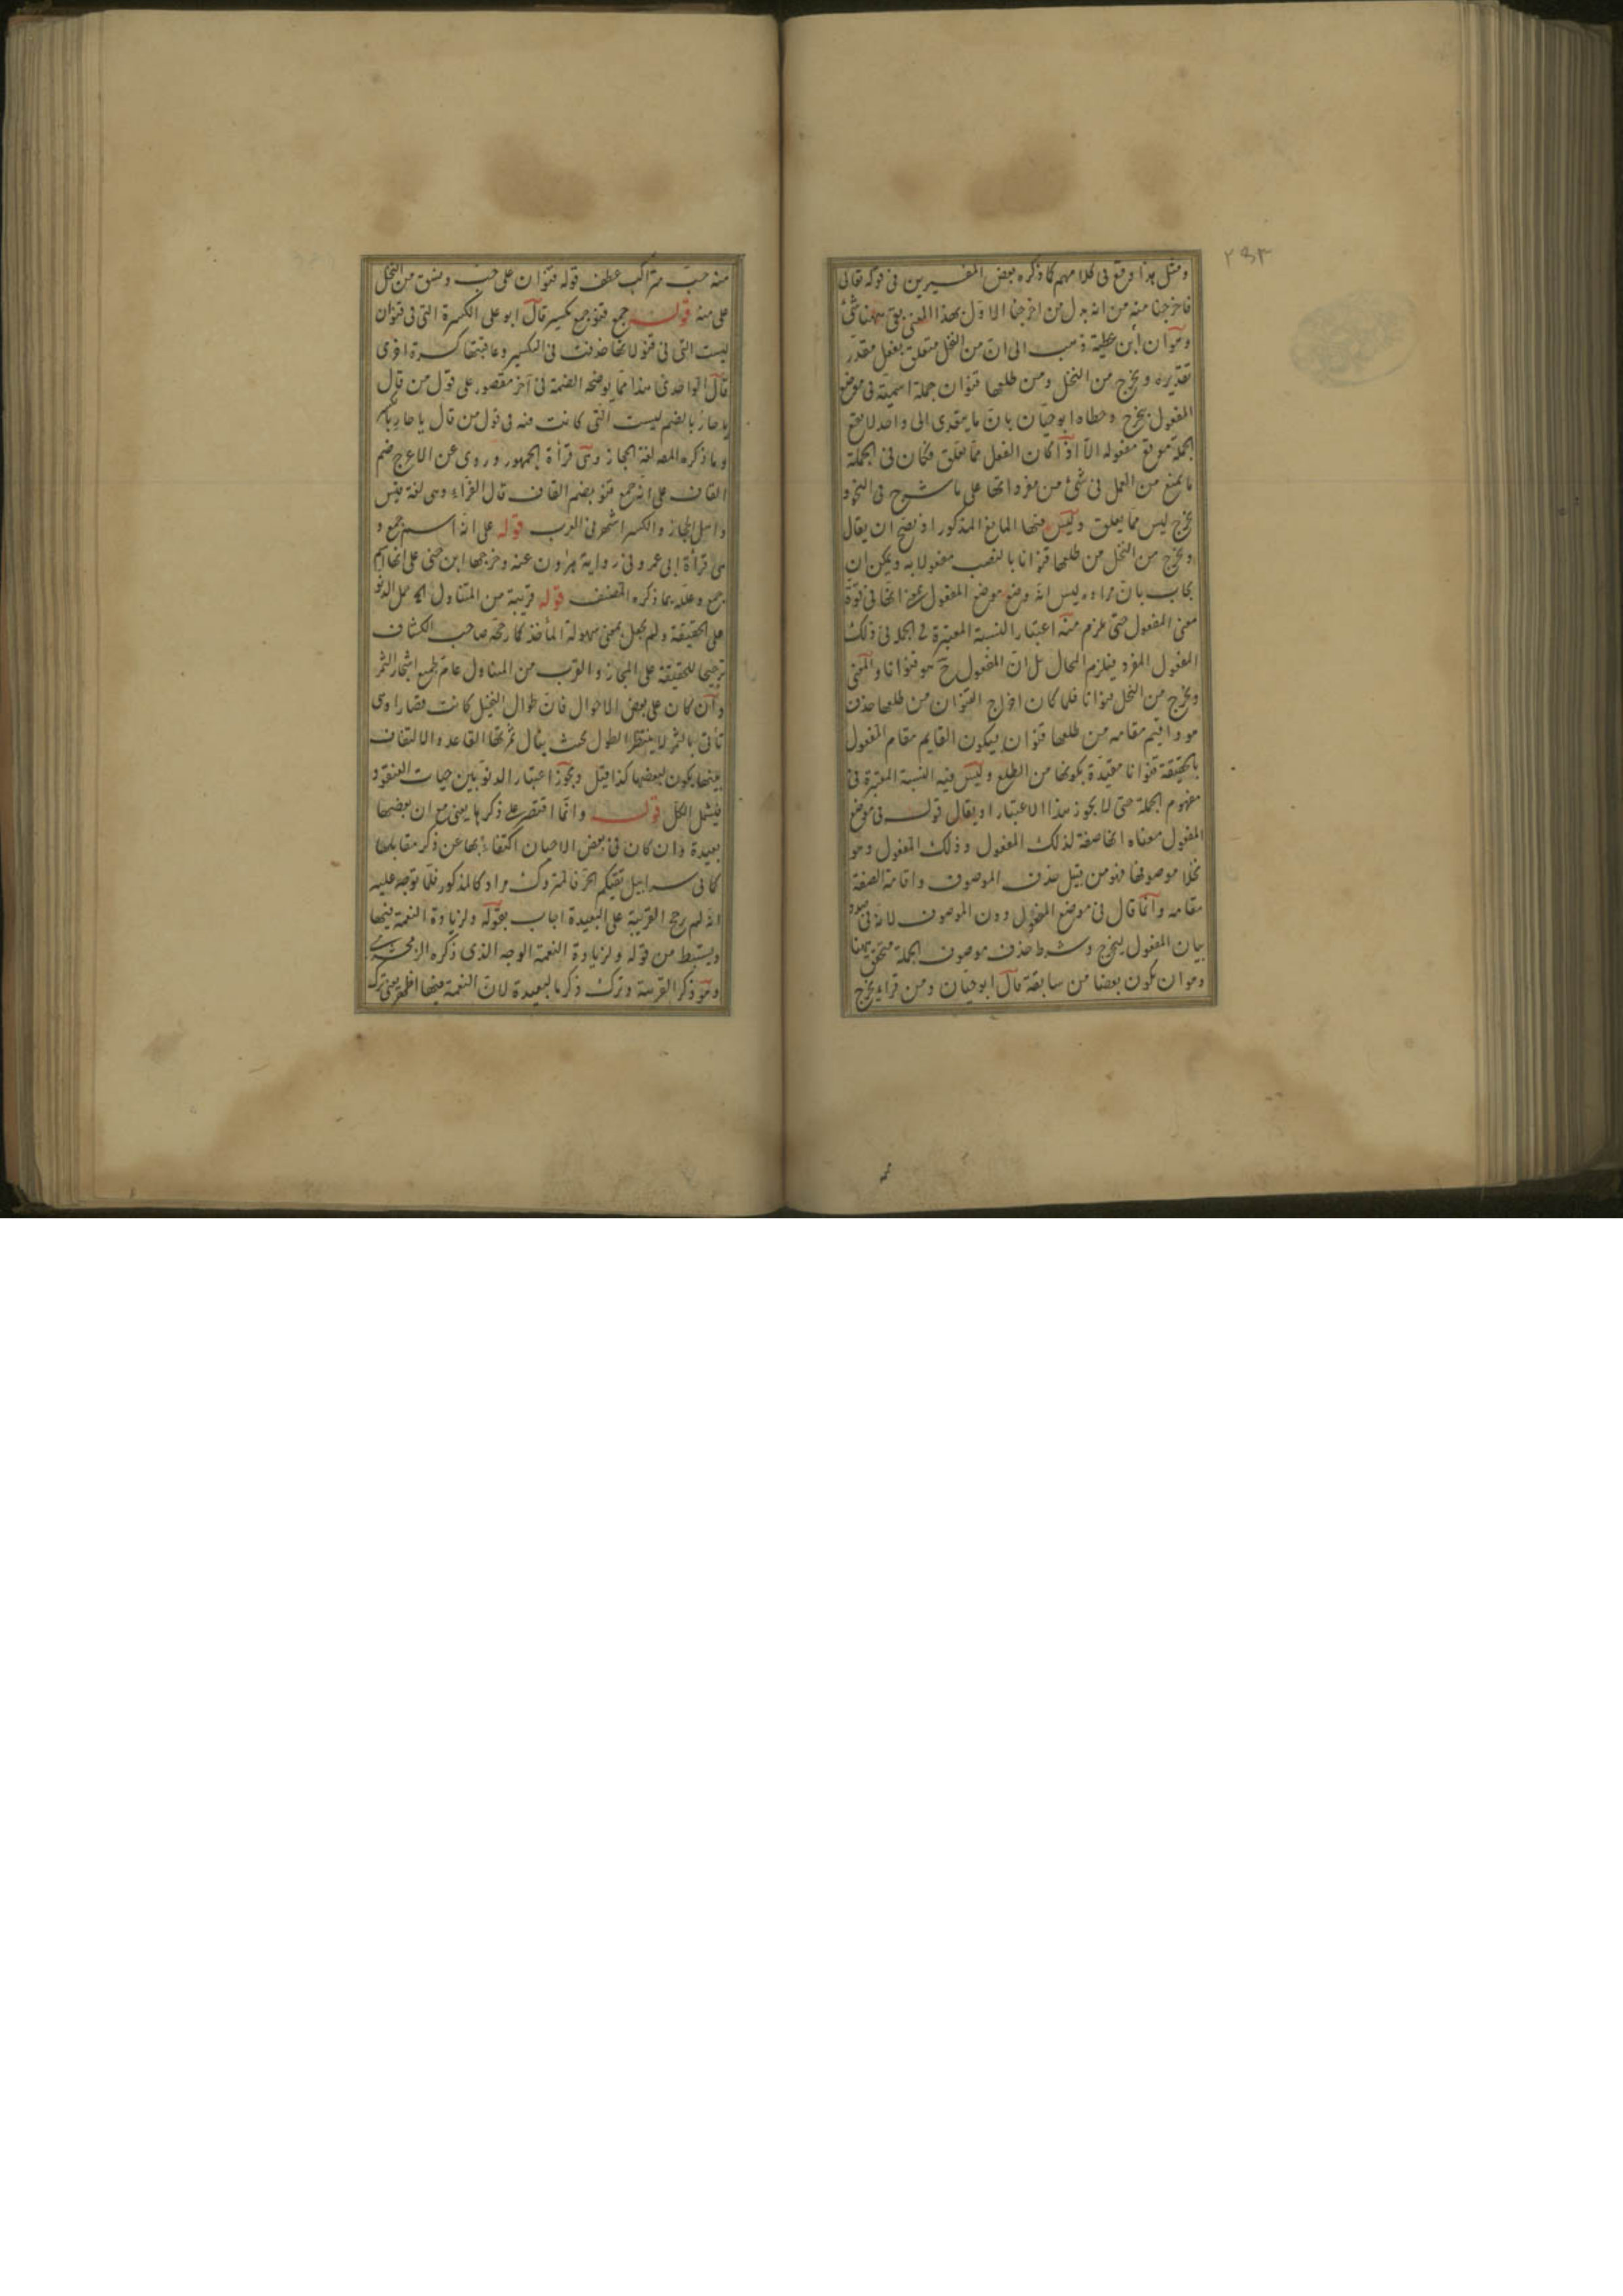 ٢٩٣
ومثل هذا وقع فى كلامهم كما ذكره بعض المفسرين فى قوله تعالى
فاخرجنا منه من انه بدل من اخرجنا الاول بهذا المعنى بقى ههنا شئ
وهو ان ابن عطية ذهب الى ان من النخل متعلق بفعل مقدر
تقديره ويخرج من النخل ومن طلعها قنوان جملة اسمية فى موضع
المفعول بيخرج وخطاه ابو حيان بان ما يتعدى الى واحد لا يقع
الجملة موقع مفعوله الا اذا كان الفعل مما يعلق فكان فى الجملة
ما يمنع من العمل فى شئ من مفرداتها على ما شرح فى النحو و
يخرج ليس مما يعلق وليس فيها المانع المذكور اذ يصح ان يقال
ويخرج من النخل من طلعها قنوانا بالنصب مفعولا به ويمكن ان
يجاب بان مراده ليس انه وضع موضع المفعول انها فى قوة
معنى المفعول حتى يلزم منه اعتبار النسبة المعتبرة فى الجملة فى ذلك
المفعول المفرد فيلزم المحال بل ان المفعول ح هو قنوانا والمعنى
ويخرج من النخل قنوانا فلما كان اخراج القنوان من طلعها حذف
هو واقيم مقامه من طلعها قنوان فيكون القايم مقام المفعول
بالحقيقة قنوانا مقيدة بكونها من الطلع وليس فيه النسبة المعتبرة فى
مفهوم الجملة حتى لا يجوز هذا الاعتبار او يقال قوله فى موضع
المفعول معناه انها صفة لذلك المفعول وذلك المفعول وهو
نخلا موصوفها فهو من قبيل حذف الموصوف واقامة الصفة
مقامه وانما قال فى موضع المفعول دون الموصوف لانه فى صدد
بيان المفعول ليخرج وشرط حذف موصوف الجملة متحقق ههنا
وهو ان يكون بعضا من سابقة قال ابو حيان ومن قرا يخرج
منه حب متراكب عطف قوله قنوان على حب ونسق من النخل
على منه قوله جمع قنو جمع تكسير قال ابو على الكسرة التى فى قنوان
ليست التى فى قنو لانها حذفت فى التكسير وعاقبتها كسرة اخرى
قال الواحدى هذا مما يوضحه الضمة فى آخر مقصور على قول من قال
يا حار بالضم ليست التى كانت فيه فى قول من قال يا حار بالكسر
وما ذكره المص لغة الحجاز وهى قرأة الجمهور وروى عن الاعرج ضم
القاف على انه جمع قنو بضم القاف قال الفراء وهى لغة قيس
واهل الحجاز والكسر اشهر فى العرب قوله على انه اسم جمع و
هى قرأة ابى عمرو فى رواية هرون عنه وخرجها ابن جنى على انها اسم
جمع وعلله بما ذكره المصنف قوله قريبة من المتناول حمل الدنو
على الحقيقة ولم يجعل بمعنى سهولة المأخذ كما رجحه صاحب الكشاف
ترجيحا للحقيقة على المجاز والقرب من المتناول عام لجميع اشجار الثمر
وان كان على بعض الاحوال فان طوال النخيل كانت قصارا وهى
تأتى بالثمر لا ينتظر الطول بحيث ينال ثمرتها القاعد والالتفاف
بينها يكون لبعضها كذا قيل ويجوز اعتبار الدنو بين حبات العنقود
فيشمل الكل قوله وانما اقتصر على ذكرها يعنى مع ان بعضها
بعيدة وان كان فى بعض الاحيان اكتفاء بها عن ذكر مقابلها
كما فى سرابيل تقيكم الحر فالمتروك مراد كالمذكور فلما توجه عليه
انه لم رجح القريبة على البعيدة اجاب بقوله ولزيادة النعمة فيها
ويستنبط من قوله ولزيادة النعمة الوجه الذى ذكره الزمخشرى
وهو ذكر القريبة وترك ذكر البعيدة لان النعمة فيها اظهر يعنى ترك